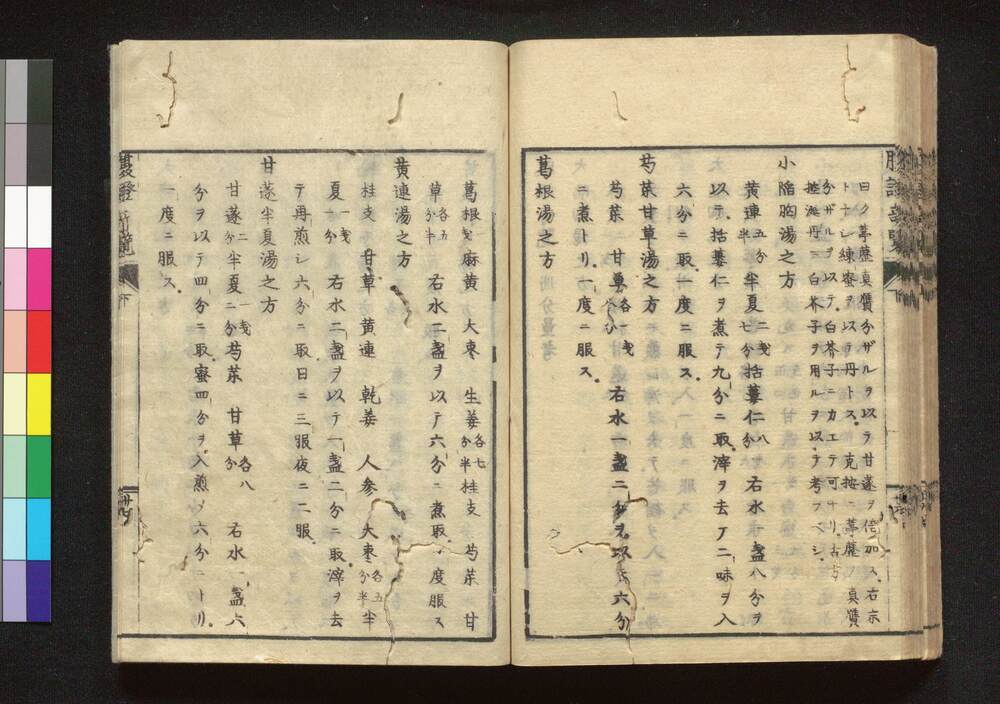 曰ク葶藶真贋分ザルヲ以テ甘遂ヲ倍加ス右示
トナシ練蜜ヲ以テ丹トス克按ニ葶藶ノ真贋
分ザルヲ以テ白芥子ニカエテ可ナリ古
控涎丹ニ白芥子ヲ用ルヲ以テ考フベシ
小陥胸湯之方
黄連五分半半夏二戔七分括蔞仁八分右水盞八分ヲ
以テ括蔞仁ヲ煮テ九分ニ取滓ヲ去テ二味ヲ入
六分ニ取一度ニ服ス
芍薬甘草湯之方
芍薬 甘草各一戔 右水一盞二分ヲ以六分
ニ煮トリ一度ニ服ス
葛根湯之方
葛根一戔麻黄 大棗 生姜各七分半桂支 芍薬 甘
草各五分半 右水二盞ヲ以テ六分ニ煮取一度服ス
黄連湯之方
桂支 甘草 黄連 乾姜 人参 大棗各五分半半
夏一戔一分 右水二盞ヲ以テ一盞二分ニ取滓ヲ去
テ再煎シ六分ニ取日ニ三服夜ニ二服
甘遂半夏湯之方
甘遂二分半夏一戔二分芍薬 甘草各八分 右水一盞六
分ヲ以テ四分ニ取蜜四分ヲ入煎メ六分ニトリ
一度ニ服ス
下